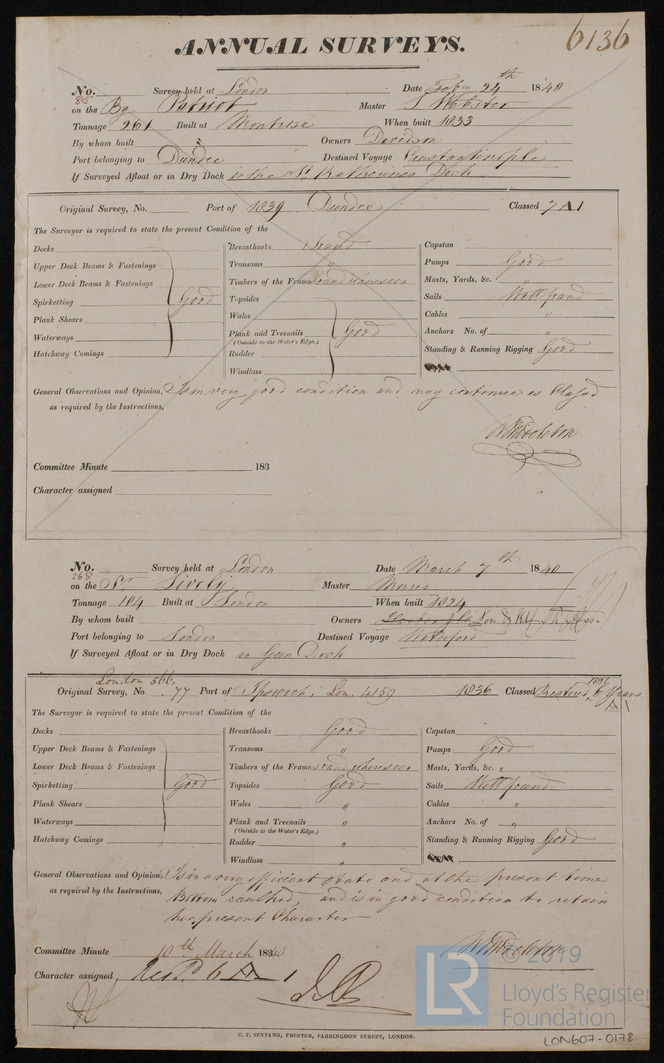 6136
ANNUAL SURVEYS.
No. 85 Survey held at London Date Feby 24th 1840
on the Bg Patriot Master Webster
Tonnage 261 Built at Montrose When built 1833
By whom built Owners Davidson
Port belonging to Dundee Destined Voyage Constantinople
If Surveyed Afloat or in Dry Dock in the St Katherines Dock
Original Survey, No. Port of 1839 Dundee Classed 7 A 1
The Surveyor is required to state the present Condition of the
Decks
Upper Deck Beams & Fastenings
Lower Deck Beams & Fastenings
Spirketting Good
Plank Shears
Waterways
Hatchway Comings
Breasthooks Sound
Transoms "
Timbers of the Frame sound where seen
Topsides
Wales
Plank and Treenails Good
(Outside to the Water's Edge.)
Rudder
Windlass
Capstan
Pumps Good
Masts, Yards, &c. "
Sails Well found
Cables "
Anchors No. of "
Standing & Running Rigging Good
General Observations and Opinion, Is in very good condition and may continue as Classed
as required by the Instructions,
Committee Minute 183
Character assigned
No. 268 Survey held at London Date March 7th 1840
on the Sr Lively Master
Tonnage 104 Built at London When built 1824
By whom built Owners Lon &
Port belonging to London Destined Voyage Waterford
If Surveyed Afloat or in Dry Dock in Dock
London 566
Original Survey, No. 77 Port of Ipswich; Lon. 4159 1836 Classed Restored 1836 6 Years A 1
The Surveyor is required to state the present Condition of the
Decks
Upper Deck Beams & Fastenings
Lower Deck Beams & Fastenings
Spirketting Good
Plank Shears
Waterways
Hatchway Comings
Breasthooks Good
Transoms "
Timbers of the Frame sound where seen
Topsides Good
Wales "
Plank and Treenails "
(Outside to the Water's Edge.)
Rudder "
Windlass "
Capstan
Pumps Good
Masts, Yards, &c. "
Sails Well found
Cables "
Anchors No. of "
Standing & Running Rigging Good
General Observations and Opinion, Is in a very efficient state and at the present time
as required by the Instructions, Bottom caulked, and is in good condition to retain
her present Character
Committee Minute 10th March 1840
Character assigned Resd 6 A 1
C. F. SEYFANG, PRINTER, FARRINGDON STREET, LONDON.
LR © 2019
Lloyd's Register
Foundation
LON607-0178